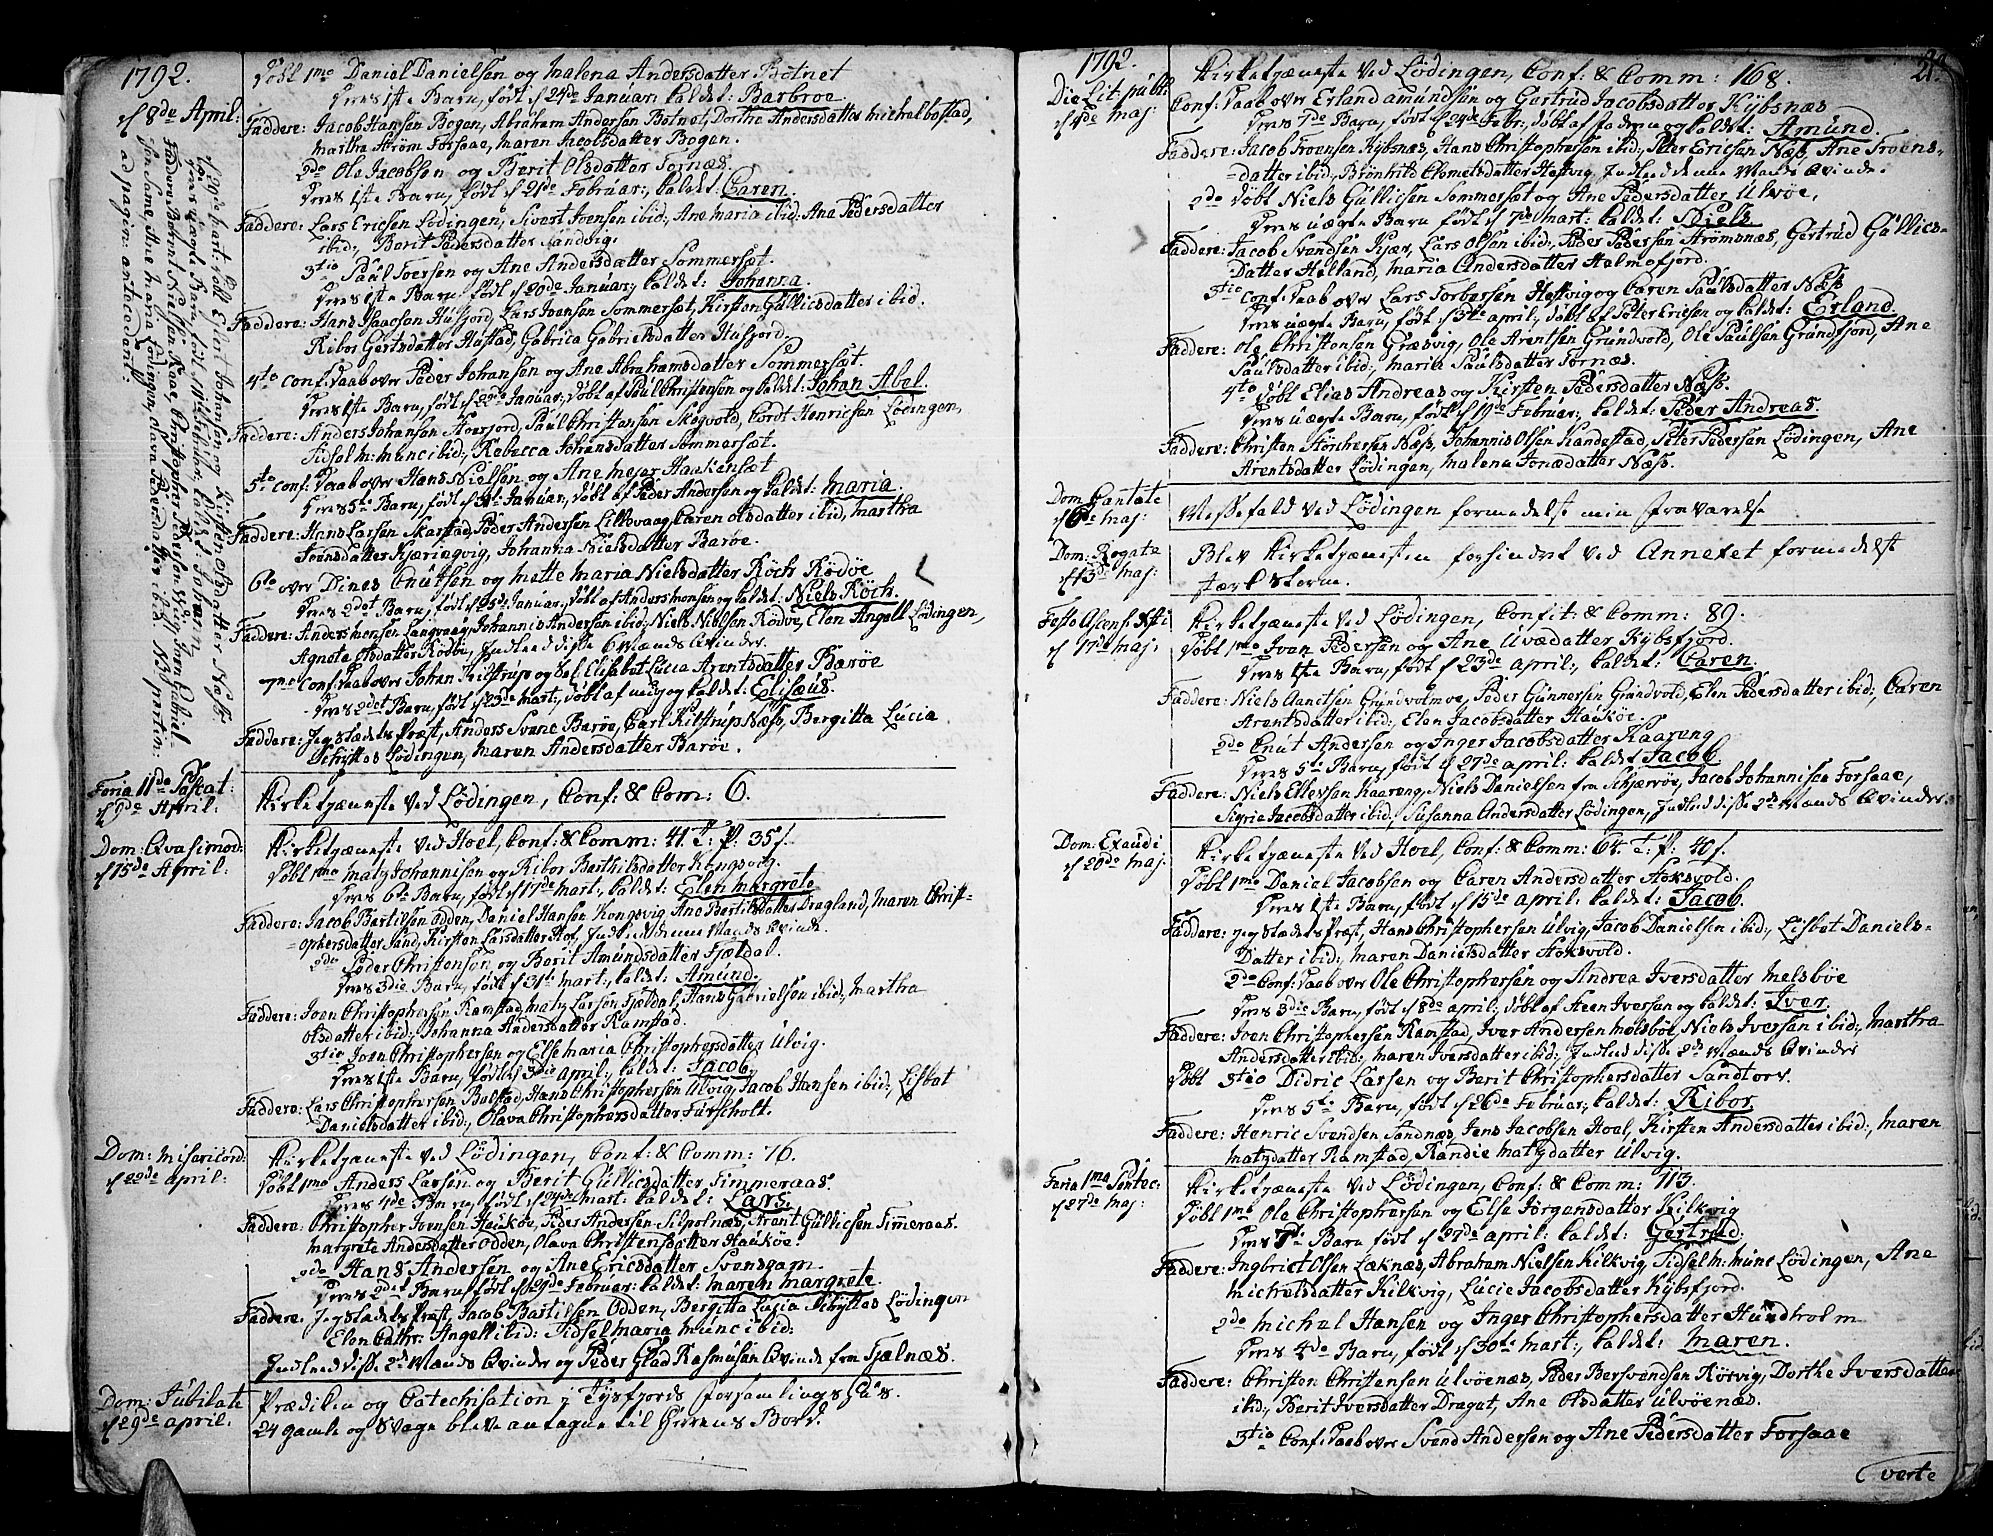 1792.
d. 8de April.
Døbt 1mo Daniel Danielsen og Malena Andersdatter Botnet
Deres 1ste Barn, født d. 24de Januar; kaldet: Barbroe.
Faddere: Jacob Hansen Bogen, Abraham Andersen Botnet, Dorthe Andersdatter Michalbostad,
Martha Strøm Forsaae, Maren Jacobsdatter Bogen.
2do Ole Jacobsen og Berit Olsdatter Tornæs
Deres 1ste Barn, født d. 21de Februar; kaldet: Caren.
Faddere: Lars Ericsen Lødingen, Sivert Ivensen ibid; Ane Maria ibid; Ane Pedersdatter
ibid; Berit Pedersdatter Sandvig.
3tio Paul Toersen og Ane Andersdatter Sommersæt.
Deres 1ste Barn, født d. 20de Januar; kaldet: Johanna.
Faddere: Hans Isaacsen Husjord, Lars Ivensen Sommersæt, Kirsten Gullicsdatter ibid.
Ribor Gertsdatter Hustad, Gabrica Gabrielsdatter Husjord.
4to Conf: Daab over Peder Johansen og Ane Abrahamsdatter Sommersæt.
Deres 1ste Barn, født d. 22de Januar; døbt af Paul Christensen og kaldet: Johan Abel.
Faddere: Anders Johansen Hoersjord, Paul Christensen Skogvold, Cordt Henricsen Lødingen,
Sidsel M: Munc ibid; Rebecca Johansdatter Sommersæt.
5to Conf: Daab over Hans Nielsen og Ane Mejer Haakensæt
Deres 5te Barn, født d. Januar; døbt af Peder Andersen og kaldet: Maria.
Faddere: Hans Larsen Skarstad, Peder Andersen Lillevaag, Caren Olsdatter ibid, Martha
Ivensdatter Kjæringvig, Johanna Nielsdatter Barøe.
6to over Dines Cnutsen og Mette Maria Nielsdatter Röch Rødøe
Deres 2det Barn, født d. 25de Januar; døbt af Anders Monsen og kaldet: Niels Röch.
Faddere: Anders Monsen Langvaag, Johannis Andersen ibid; Niels Nielsen Rødøe, Elen Angell Lødingen,
Agnete Olsdatter Rødøe, Indleed disse 6 Mænds Qvinder.
7mo Conf: Daab over Johan Kilstrup og Sal. Elisabet Lucia Arentsdatter Barøe
Deres 2det Barn, født d. 23de Mart; døbt af mig og kaldet: Elisæus.
Faddere: Jeg Stædets Præst, Anders Svane Barøe, Carl Kilstrup Næss, Bergitta Lucia
Schyttes Lødingen, Maren Andersdatter Barøe.
Feria 11da Pascat:
d. 9de April.
Kirketjæneste ved Lødingen, Conf: & Com: 6.
Dom: Qvasimod:
d. 15de April.
Kirketjæneste ved Hoel, Conf: & Comm: 41. T. P: 35 s.
Døbt 1mo Matz Johannisen og Ribor Berthilsdatter Kongsvig.
Deres 6te Barn, født d. 17de Mart, kaldet: Elen Margrete
Faddere: Jacob Bertilsen Odden, Daniel Hansen Kongsvig, Ane Bertilsdatter Dragland, Maren Christ-
=ophersdatter Sand, Kirsten Larsdatter Hof, Indleed denne Mands Qvinde.
2do Peder Christensen og Berit Amundsdatter Fjeldal.
Deres 3die Barn, født d. 31te Mart; kaldet: Amund.
Faddere: Joen Christophersen Ramstad, Matz Larsen Fjeldal, Hans Gabrielsen ibid; Martha
Olsdatter ibid; Johanna Andersdatter Ramstad.
3tio Joen Christophersen og Else Maria Christophersdatter Ulvig.
Deres 1ste Barn, født d. 3die April; kaldet: Jacob.
Faddere: Lars Christophersen Bolstad, Hans Christophersen Ulvig, Jacob Hansen ibid; Lisbet
Danielsdatter ibid; Olava Christophersdatter Furscholt.
Dom: Misericord:
d. 22de April:
Kirketjæneste ved Lødingen, Conf: & Comm: 76.
Døbt 1mo Anders Larsen og Berit Gullicsdatter Timmeraas.
Deres 4de Barn, født d. 24de Mart; kaldet: Lars.
Faddere: Christopher Ivensen Haukøe, Peder Andersen Silpolnæs, Arent Gullicsen Timmeraas.
Margrete Andersdatter Odden, Olava Christensdatter Haukøe.
2do Hans Andersen og Ane Ericsdatter Svensgam.
Deres 2det Barn, født d. 29de Februar; kaldet: Maren Margrete.
Faddere: Jeg Stædets Præst, Jacob Bartilsen Odden, Bergitta Lucia Schyttes Lødingen
Elen Cathr: Angell ibid: Sidsel Maria Munc ibid:
Indleed disse 2de Mænds Qvinder og Peder Glad Rasmusen Qvinde fra Fjælnæs.
Dom: Jubilate
d. 29de April:
Prædiken og Catechisation i Tysfjords Forsamlings Huus.
24 gamle og svage bleve antagne til Herrens Bord.
d. 20de Mart: døbt Eilert Johansen og Kirsten Olsdatter Næss
Deres uægte Barn, kaldet: Johan
Faddere: Berent Nielsen Kaae, Christopher Pedersen Vestbern, Gabriel
sen Same, Ane Maria Lødingen, Olava Pedersdatter ibid. NB: pertin:
ad pagin: antecedent:
1792.
212
Die Lit: publ:
d. 4de Maj:
Kirketjæneste ved Lødingen, Conf: & Comm: 168.
Conf: Daab over Erland Amundsen og Gertrud Jacobsdatter Kybsnæs
Deres 7de Barn, født d. 24de Febr; døbt af Faderen og kaldet: Amund.
Faddere: Jacob Troensen Kybsnæs, Hans Christophersen ibid; Peter Ericsen Næs, Ane Troens-
=datter ibid; Brønhild Clemetsdatter Hestvig, Indleed denne Mands Qvinde.
2do Døbt Niels Gullicsen Sommersæt og Ane Pedersdatter Ulvøe,
Deres uægte Barn, født d. 7de Mart: kaldet: Niels
Faddere: Jacob Svendsen Kjær, Lars Olsen ibid; Peder Pedersen Strømsnæs, Gertrud Gullics-
Datter Helland, Maria Andersdatter Halmofjord.
3tio Conf: Daab over Lars Torbersen Hestvig og Caren Paulsdatter Næss
Deres uægte Barn, født d. 3die April; døbt af Peter Ericsen og kaldet: Erland.
Faddere: Ole Christensen Græsvig, Ole Arentsen Grundvold, Ole Paulsen Grundfjord, Ane
Paulsdatter ibid; Maria Paulsdatter Tornæs.
4to Døbt Elias Andreas og Kirsten Pedersdatter Næss.
Deres uægte Barn, født d. 19de Februar; kaldet: Peder Andreas.
Faddere: Christen Storchersen Næss, Johannis Olsen Kandestad, Peter Pedersen Lødingen, Ane
Arentsdatter Lødingen, Malena Jonædatter Næss.
Dom: Cantate
d. 6te Maj:
Messefald ved Lødingen formedelst min Fraværelse
Dom: Rogate
d. 13de Maj:
Blev Kirketjænesten forhindret ved Annexet formedelst
stærk storm.
Festo Ascens: Xsti
d. 17de Maj:
Kirketjæneste ved Lødingen, Confit: & Comm: 89.
Døbt 1mo Iven Pedersen og Ane Uvædatter Kybsfjord.
Deres 1ste Barn, født d. 23de April; kaldet: Caren.
Faddere: Niels Arentsen Grundvolmoe, Peder Gunnersen Grundvold, Elen Pedersdatter ibid; Caren
Arentsdatter ibid; Elen Jacobsdatter Haukøe.
2do Cnut Andersen og Inger Jacobsdatter Kaareng
Deres 5te Barn, født d. 27de April: kaldet Jacob.
Faddere: Niels Ellevsen Kaareng, Niels Danielsen fra Skjærvøe, Jacob Johannisen Forsaae,
Sigrie Jacobsdatter ibid; Susanna Andersdatter Lødingen, Indleed disse 2de Mænds Qvinder.
Dom: Exaudi
d. 20de Maj:
Kirketjæneste ved Hoel, Conf: & Comm: 64. T: P: 40 s.
Døbt 1mo Daniel Jacobsen og Caren Andersdatter Stoksvold.
Deres 1ste Barn, født d. 15de April: kaldet: Jacob.
Faddere: Jeg Stædets Præst, Hans Christophersen Ulvig, Jacob Danielsen ibid; Lisbet Daniels-
Datter ibid; Maren Danielsdatter Stoksvold.
2do Conf: Daab over Ole Christophersen og Andrea Iversdatter Melsbøe
Deres 3die Barn, født d. 8de April; døbt af Steen Iversen og kaldet: Iver.
Faddere: Joen Christophersen Ramstad, Iver Andersen Melsbøe, Niels Iversen ibid; Martha
Andersdatter ibid; Maren Iversdatter ibid; Indleed disse 2de Mænds Qvinder
Døbt 3tio Didric Larsen og Berit Christophersdatter Sandtorv.
Deres 5te Barn, født d. 26de Februar; kaldet: Ribor.
Faddere: Henric Svendsen Sandnæs, Jens Jacobsen Hoel, Kirsten Andersdatter ibid;, Maren
Matzdatter Ramstad, Randie Matzdatter Ulvig.
Feria 1ma Pentec:
d. 27de Maj:
Kirketjæneste ved Lødingen, Conf: & Comm: 113.
Døbt 1mo Ole Christophersen og Else Jørgensdatter Kilkvig
Deres 7de Barn født d. 29de April: kaldet: Gertrud.
Faddere: Ingbriet Olsen Læknæs, Abraham Nielsen Kilkvig, Sidsel M: Munc Lødingen, Ane
Michelsdatter Kilkvig, Lucie Jacobsdatter Kybsfjord.
2do Michel Hansen og Inger Christophersdatter Hundholm
Deres 4de Barn, født d. 30te Mart: kaldet: Maren.
Faddere: Christen Christensen Ulvøenæs, Peder Bersvendsen Rørvig, Dorthe Iversdatter
ibid; Berit Iversdatter Draget, Ane Olsdatter Ulvøenæs.
3tio Conf: Daab over Svend Andersen og Ane Pedersdatter Forsaae
verte